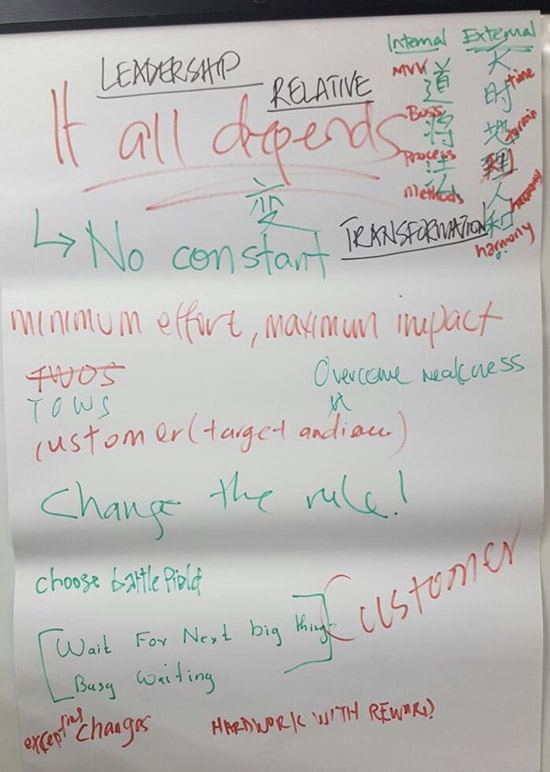 LEADERSHIP
RELATIVE
It all depends
変
No constant
TRANSFORMATION
Internal
MVV
道
Boss
将
Process
法
Methods
External
天
時
time
地
理
terrain
人
和
harmony
minimum effort, maximum impact
TWOS
TOWS
Overcome weakness
customer (target
Change the rule!
choose battle field
Wait For Next big thing
Busy Waiting
Customer
Changes
HARDWORK WITH REWARD?